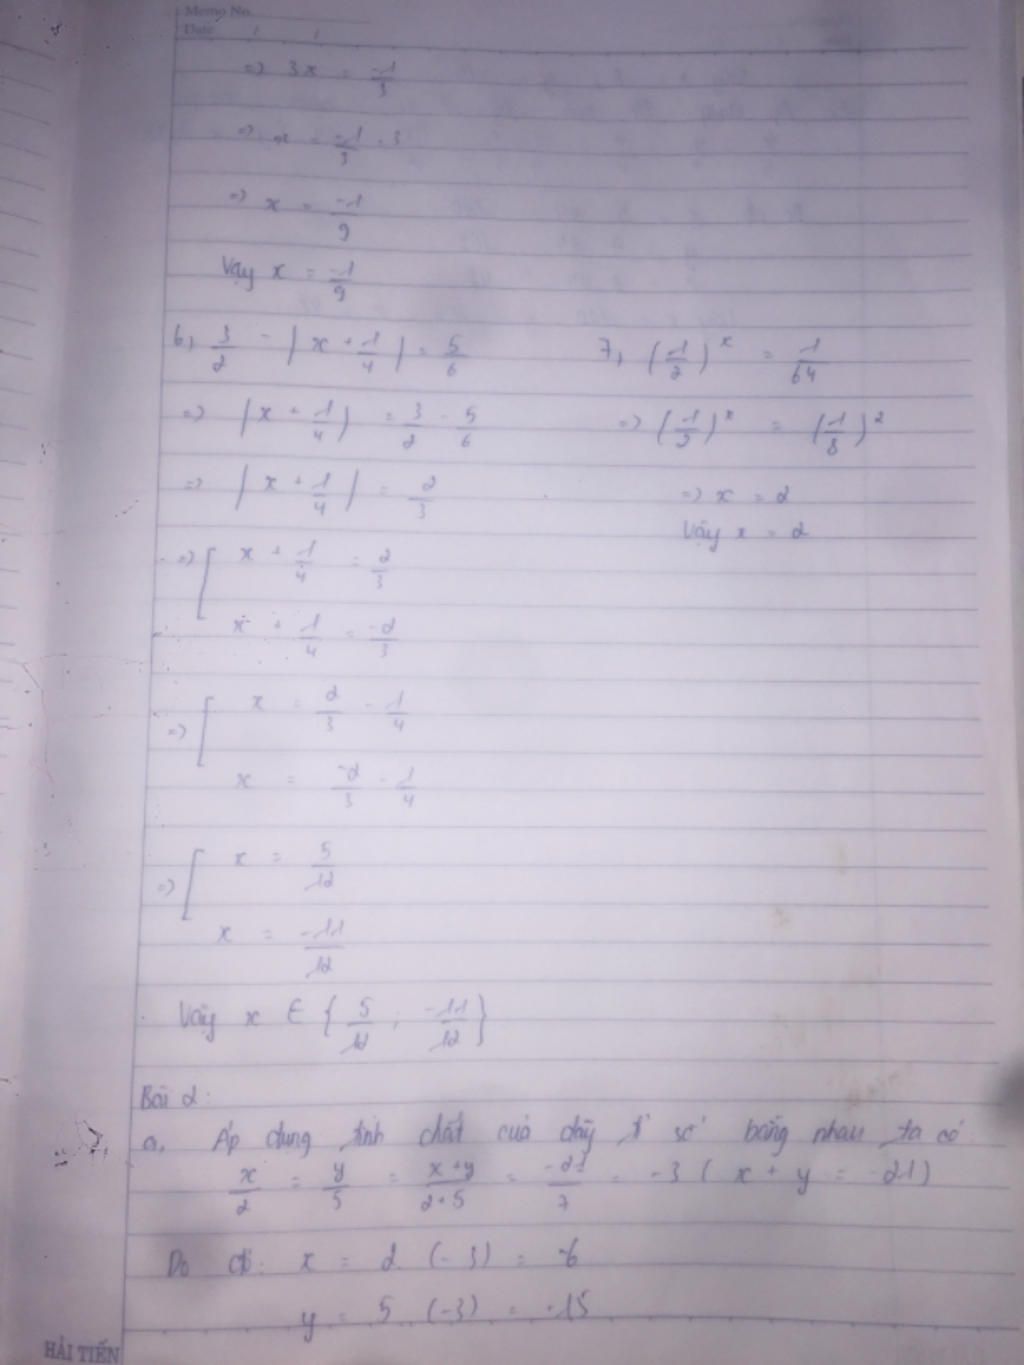 Memo No.
Date / /
=> 3x = -1/3
=> x = -1/3 . 3
=> x = -1/9
Vậy x = -1/9
6, 3/2 - |x + 1/4| = 5/6
=> |x + 1/4| = 3/2 - 5/6
=> |x + 1/4| = 2/3
=> [ x + 1/4 = 2/3
x + 1/4 = -2/3
=> [ x = 2/3 - 1/4
x = -2/3 - 1/4
=> [ x = 5/12
x = -11/12
Vậy x ∈ {5/12 ; -11/12}
7, (1/2)^x = 1/64
=> (1/2)^x = (1/8)^2
=> x = 2
Vậy x = 2
Bài 2:
a. Áp dung tính chất của dãy tỉ số bằng nhau ta có
x/2 = y/5 = x+y/2+5 = -21/7 = -3 ( x + y = -21)
Do đó: x = 2 . (-3) = -6
y = 5 (-3) = -15
HẢI TIẾN